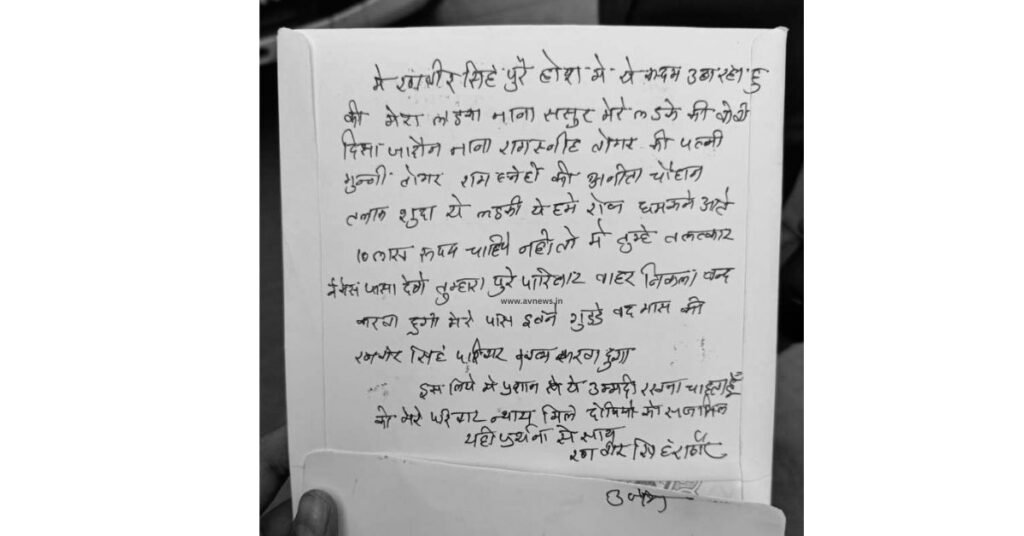 मे रणवीर सिंह पुरे होश मे ये कदम उठा रहा हु
की मेरा लडका नाना ससुर मेरे लडके की बीवी
दिसा जादौन नाना रामस्नीह तोमर की पत्नी
मुन्नी तोमर राम स्नेही की अनीता चौहान
तलाक शुदा ये लडकी ये हमे रोज धमकने आते
10 लाख रूपय चाहिये नही तो मे तुम्हे बलत्कार
केस फसा देगे तुम्हारा पुरे परिवार बाहर निकला बन्द
www.avnews.in
करवा दुगा मेरे पास इतने गुडडे बद मास की
रणवीर सिंह परिवार करवा दुगा
इस लिये मे प्रशान से ये उम्मदी रखना चाहता हूँ
की मेरे परिवार न्याय मिले दोषियो को सजा मिले
यही प्रर्थना मे साथ
रणवीर सिंह